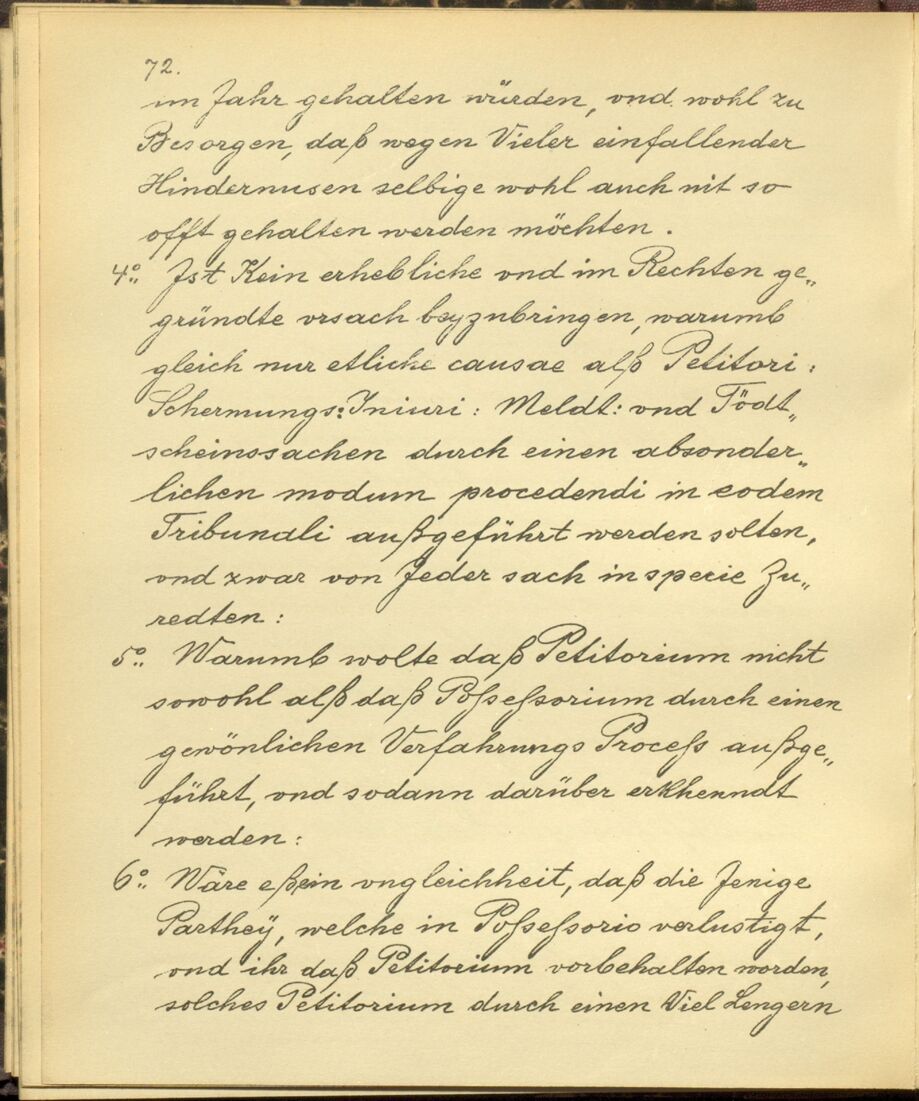 72.
im Jahr gehalten würden, vnd wohl zu
Besorgen, daß wegen Vieler einfallender
Hindernusen selbige wohl auch nit so
offt gehalten werden möchten.
4º„ Jst Kein erhebliche vnd im Rechten ge„
gründte vrsach beyzubringen, warumb
gleich nur etliche causae alß Petitori:
Schermungs: Iniuri: Meldt: vnd Tödt„
scheinssachen durch einen absonder„
lichen modum procedendi in eodem
Tribunali außgeführt werden solten,
vnd zwar von Jeder sach in specie Zu„
redten:
5º„ Warumb wolte daß Petitorium nicht
sowohl alß daß Possessorium durch einen
gewönlichen Verfahrungs Process außge„
führt, vnd sodann darüber erkhenndt
werden:
6º„ Wäre eß ein vngleichheit, daß die Jenige
Parthey, welche in Possessorio verlustigt,
vnd ihr daß Petitorium vorbehalten worden,
solches Petitorium durch einen Viel Lengern